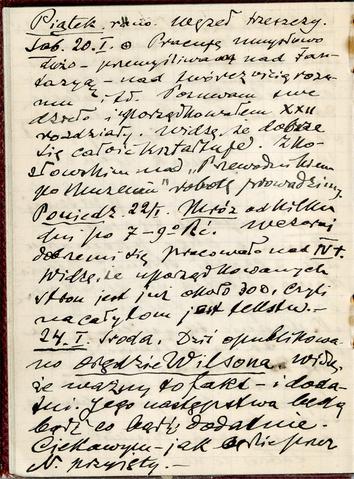 Piątek, rano. Wszędy trzeszczy.
Sob. 20.I. Pracuję umysłowo
dużo – przemyśliwa nad fan-
tazyą – nad
mu i td. Porywam swe
dzieło i uporządkowałem XXII
rozdziały. Widzę, że dobrze
się całość kształtuje. Z Ko-
słowskim nad „Przewodnikiem
po Muzeum” robotę prowadzimy.
Poniedz. 22/I. Mróz od kilku
dni po 7–9° Ré. Wczoraj
dobrze mi się pracowało nad IV t.
Widzę, że uporządkowanych
stron jest już około 300, czyli
na cały tom jest tekstu.–
24.I. Środa. Dziś opublikowa-
no orędzie Wilsona. Widzę,
że ważny to fakt – i doda-
tni. Jego następstwa będą
bądź co bądź dodatnie.
Ciekawym – jak będzie przez
N. przyjęty. –